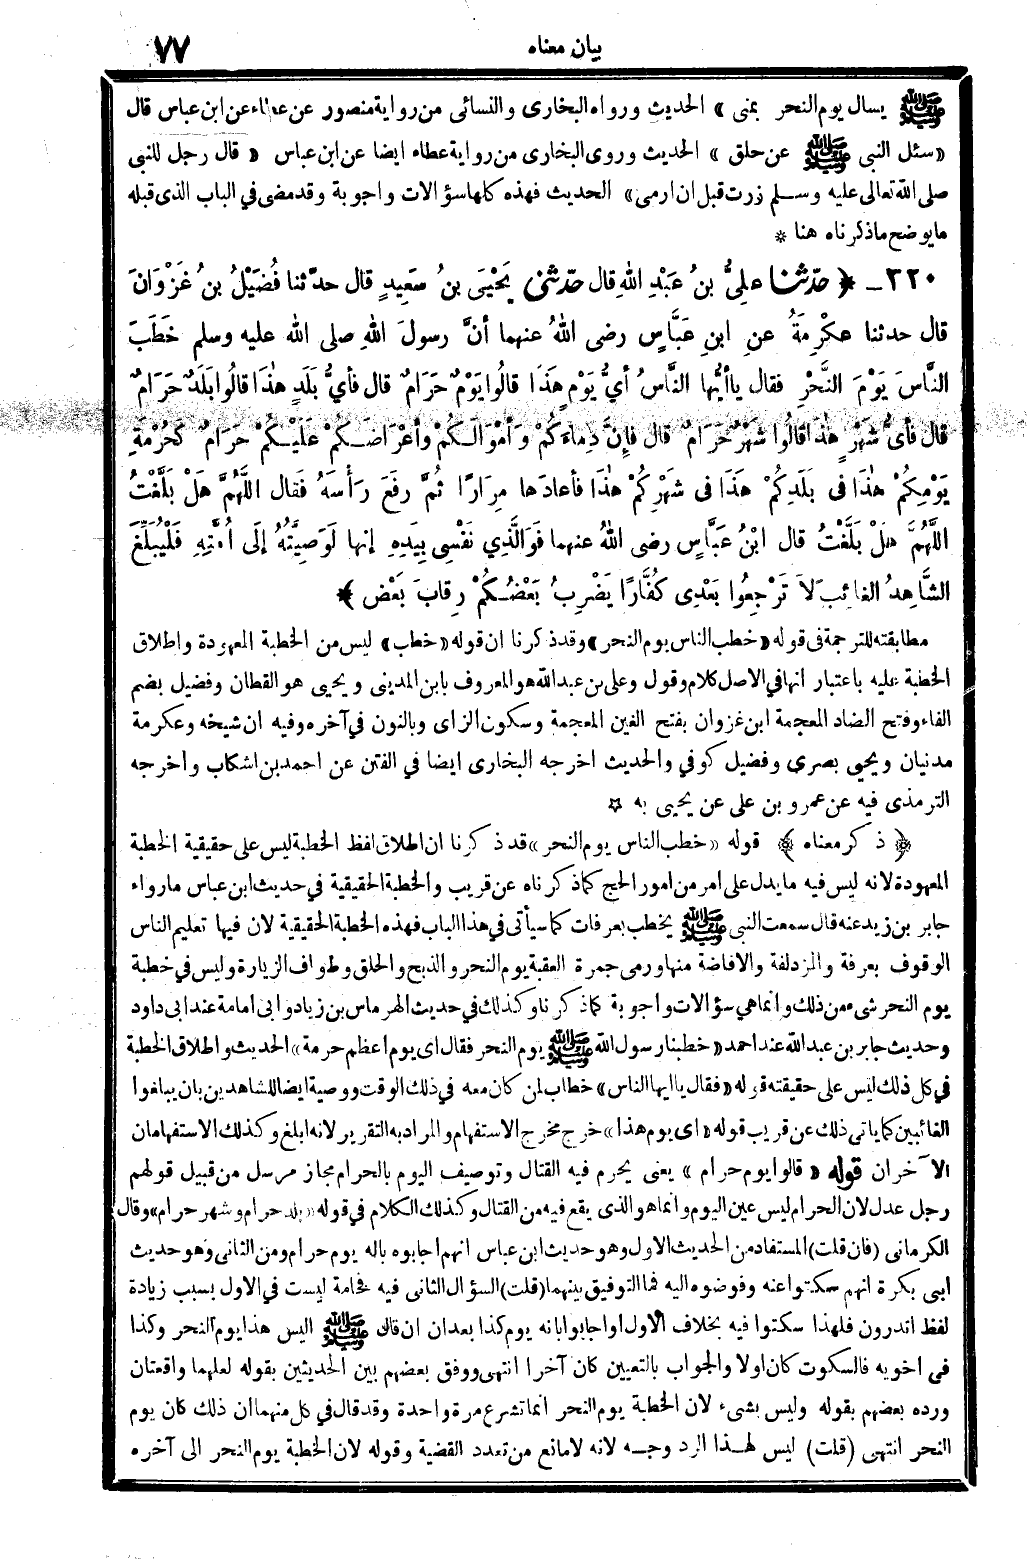 ٧٧
بيان معناه
ﷺ يسال يوم النحر بمنى » الحديث ورواه البخارى والنسائى من رواية منصور عن عطاء عن ابن عباس قال
«سئل النبى ﷺ عن حلق » الحديث وروى البخارى من رواية عطاء ايضا عن ابن عباس « قال رجل للنبى
صلى الله تعالى عليه وسلم زرت قبل ان ارمى» الحديث فهذه كلها سؤالات واجوبة وقد مضى فى الباب الذى قبله
ما يوضح ما ذكرناه هنا *
٢٢٠ ــ ﴿ حدّثنا علىُّ بنُ عَبْدِ اللهِ قال حدّثنى يَحْيَى بنُ سَعِيدٍ قال حدّثنا فُضَيْلُ بنُ غَزْوَانَ
قال حدثنا عكْرِمَةُ عنِ ابنِ عَبَّاسٍ رضى اللهُ عنهما أنَّ رسولَ اللهِ صلى الله عليه وسلم خَطَبَ
النَّاسَ يَوْمَ النَّحْرِ فقال ياأيُّها النَّاسُ أىُّ يَوْمٍ هَذَا قالُوا يَوْمٌ حَرَامٌ قال فأىُّ بَلَدٍ هٰذَا قالُوا بَلَدٌ حَرَامٌ
قال فأىُّ شَهْرٍ هٰذَا قالُوا شَهْرٌ حَرَامٌ قال فإنَّ دِماءَكُمْ وَأمْوَالَكُمْ وأعْرَاضَكُمْ عَلَيْكُمْ حَرَامٌ كَحُرْمَةِ
يَوْمِكُمْ هٰذَا فى بَلَدِكُمْ هَذَا فى شَهْرِكُمْ هٰذَا فأعادَها مِرَارًا ثُمَّ رفَعَ رَأْسَهُ فَقال اللَّهُمَّ هَلْ بَلَّغْتُ
اللَّهُمَّ هَلْ بَلَّغْتُ قال ابْنُ عَبَّاسٍ رضى اللهُ عنهما فَوَالَّذِي نَفْسِى بِيَدِهِ إنها لَوَصِيَّتُهُ إلَى أُمَّتِهِ فَلْيُبَلِّغِ
الشَّاهِدُ الغائِبَ لاَ تَرْجِعُوا بَعْدِى كُفَّارًا يَضْرِبُ بَعْضُكُمْ رِقابَ بَعْض ﴾
مطابقته للترجمة فى قوله «خطب الناس يوم النحر» وقد ذكرنا ان قوله «خطب» ليس من الخطبة المعهودة واطلاق
الخطبة عليه باعتبار انها فى الاصل كلام وقول وعلى بن عبد الله هو المعروف بابن المدينى ويحيى هو القطان وفضيل بضم
الفاء وفتح الضاد المعجمة ابن غزوان بفتح الغين المعجمة وسكون الزاى وبالنون فى آخره وفيه ان شيخه وعكرمة
مدنيان ويحيى بصرى وفضيل كوفي والحديث اخرجه البخارى ايضا فى الفتن عن احمد بن اشكاب واخرجه
الترمذى فيه عن عمرو بن على عن يحيى به ☆
﴿ ذكر معناه ﴾ قوله «خطب الناس يوم النحر» قد ذكرنا ان اطلاق لفظ الخطبة ليس على حقيقية الخطبة
المعهودة لانه ليس فيه ما يدل على امر من امور الحج كما ذكرناه عن قريب والخطبة الحقيقية في حديث ابن عباس مارواه
جابر بن زيد عنه قال سمعت النبى ﷺ يخطب بعرفات كما سيأتى فى هذا الباب فهذه الخطبة الحقيقية لان فيها تعليم الناس
الوقوف بعرفة والمزدلفة والافاضة منها ورمى جمرة العقبة يوم النحر والذبح والحلق وطواف الزيارة وليس في خطبة
يوم النحر شىء من ذلك وانما هي سؤالات واجوبة كما ذكرنا وكذلك فى حديث الهرماس بن زياد وابى امامة عند ابى داود
وحديث جابر بن عبد الله عند احمد «خطبنا رسول الله ﷺ يوم النحر فقال اى يوم اعظم حرمة» الحديث واطلاق الخطبة
في كل ذلك ليس على حقيقته قوله «فقال يا ايها الناس» خطاب لمن كان معه فى ذلك الوقت ووصية ايضا للشاهدين بان يبلغوا
الغائبين كما ياتى ذلك عن قريب قوله «اى يوم هذا» خرج مخرج الاستفهام والمراد به التقرير لانه ابلغ وكذلك الاستفهامان
الآخران قوله « قالوا يوم حرام » يعنى يحرم فيه القتال وتوصيف اليوم بالحرام مجاز مرسل من قبيل قولهم
رجل عدل لان الحرام ليس عين اليوم وانما هو الذى يقع فيه من القتال وكذلك الكلام فى قوله «بلد حرام وشهر حرام» وقال
الكرمانى (فان قلت) المستفاد من الحديث الاول وهو حديث ابن عباس انهم اجابوه باله يوم حرام ومن الثانى وهو حديث
ابى بكرة انهم سكتوا عنه وفوضوه اليه فما التوفيق بينهما (قلت) السؤال الثانى فيه فخامة ليست في الاول بسبب زيادة
لفظ اتدرون فلهذا سكتوا فيه بخلاف الاول او اجابوا بانه يوم كذا بعد ان قال ﷺ اليس هذا يوم النحر وكذا
فى اخويه فالسكوت كان اولا والجواب بالتعيين كان آخرا انتهى ووفق بعضهم بين الحديثين بقوله لعلهما واقعتان
ورده بعضهم بقوله وليس بشىء لان الخطبة يوم النحر انما تشرع مرة واحدة وقد قال في كل منهما ان ذلك كان يوم
النحر انتهى (قلت) ليس لهذا الرد وجه لانه لا مانع من تعدد القضية وقوله لان الخطبة يوم النحر الى آخره